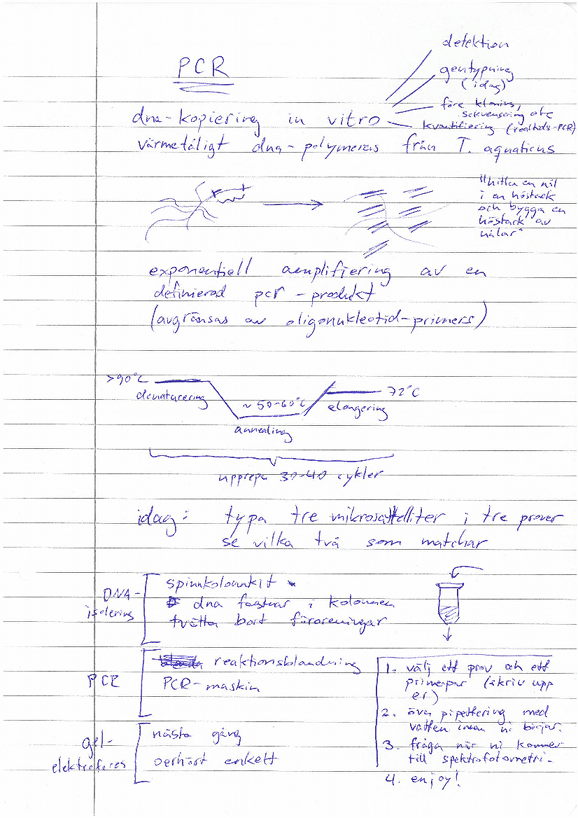 PCR
detektion
gentypning
(idag)
före kloning,
sekvensering etc
kvantifiering (realtids-PCR)
dna-kopiering in vitro
värmetåligt dna-polymeras från T. aquaticus
"hitta en nål
i en höstack
och bygga en
höstack av
nålar"
exponentiell amplifiering av en
definierad pcr-produkt
(avgränsas av oligonukleotid-primers)
>90°C
denaturering
~50-60°C
annealing
72°C
elongering
upprepa 30-40 cykler
idag: typa tre mikrosatelliter i tre prover
se vilka två som matchar
DNA-
isolering
spinnkolonnkit
dna fastnar i kolonnen
tvätta bort föroreningar
PCR
reaktionsblandning
PCR-maskin
gel-
elektrofores
nästa gång
oerhört enkelt
1. välj ett prov och ett
primerpar (skriv upp
er)
2. öva pipettering med
vatten innan ni börjar.
3. fråga när ni kommer
till spektrofotometri.
4. enjoy!